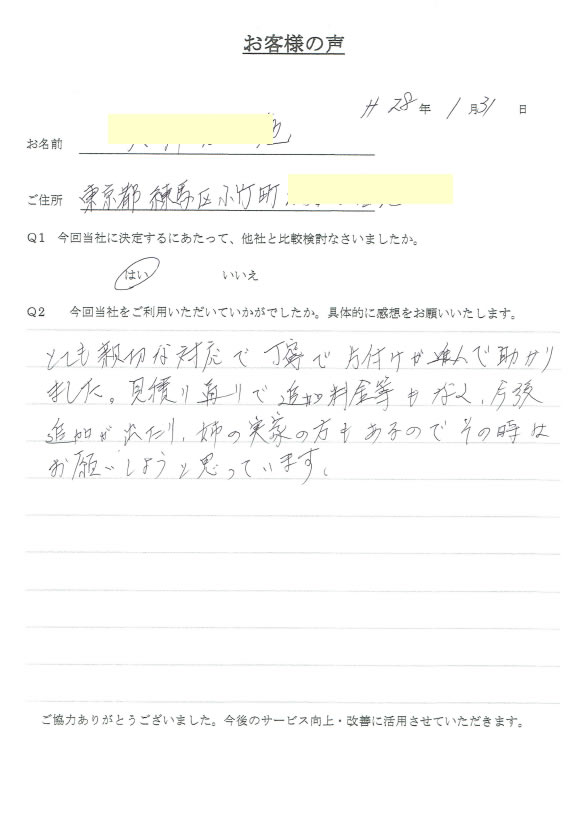 お客様の声
H 28年 1月31日
お名前
ご住所 東京都練馬区小竹町
Q1 今回当社に決定するにあたって、他社と比較検討なさいましたか。
はい いいえ
Q2 今回当社をご利用いただいていかがでしたか。具体的に感想をお願いいたします。
とても親切な対応で丁寧で片付けが進んで助かり
ました。見積り通りで追加料金等もなく、今後
追加が出たり、姉の実家の方もあるのでその時は
お願いしようと思っています。
ご協力ありがとうございました。今後のサービス向上・改善に活用させていただきます。